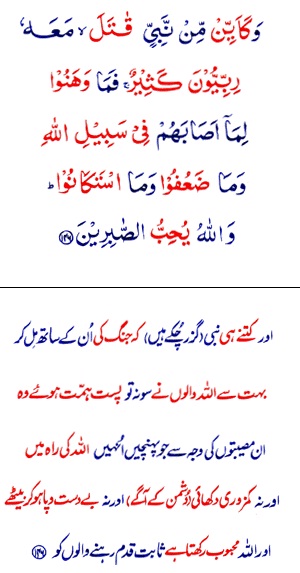 وَكَاَيِّنْ مِّنْ نَّبِيٍّ قٰتَلَ ۙ مَعَهٗ
رِبِّيُّوْنَ كَثِيْرٌ ۚ فَمَا وَهَنُوْا
لِمَاۤ اَصَابَهُمْ فِيْ سَبِيْلِ اللّٰهِ
وَمَا ضَعُفُوْا وَمَا اسْتَكَانُوْا ؕ
وَاللّٰهُ يُحِبُّ الصّٰبِرِيْنَ ﴿۱۴۶﴾
اور کتنے ہی نبی (گزر چکے ہیں) کہ جنگ کی اُن کے ساتھ مِل کر
بہت سے اللہ والوں نے سو نہ تو پست ہمّت ہوئے وہ
ان مصیبتوں کی وجہ سے جو پہنچیں اُنہیں اللہ کی راہ میں
اور نہ کمزوری دکھائی (دُشمن کے آگے) اور نہ بے دست و پا ہو کر بیٹھے
اور اللہ محبوب رکھتا ہے ثابت قدم رہنے والوں کو ﴿۱۴۶﴾